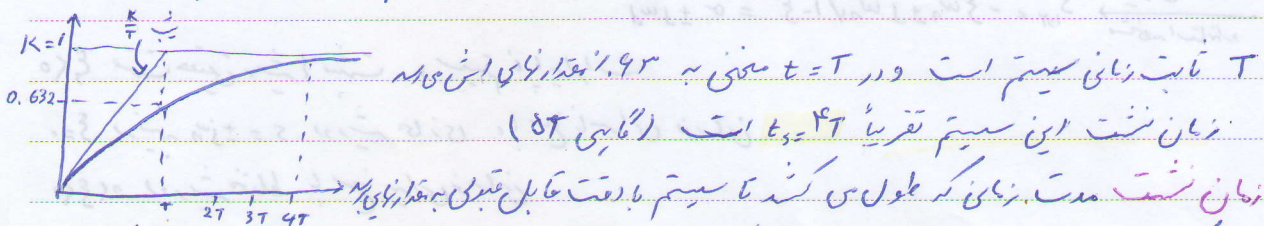 K=1
K/T شیب
0.632
T 2T 3T 4T
T ثابت زمانی سیستم است و در t=T منحنی به ۶۳٪ مقدار نهایی اش می رسد
زمان نشست این سیستم تقریباً ts=۴T است (گاهی ۵T)
زمان نشست مدت زمانی که طول می کشد تا سیستم با دقت قابل قبولی به مقدار نهایی برسد